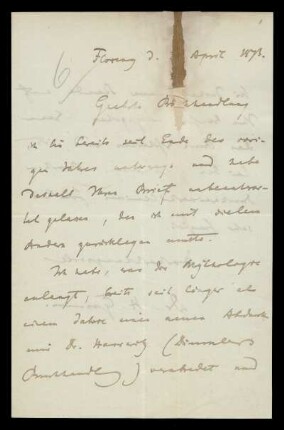 Florenz d. April 1873.
Geehrte Buchhandlung
ich bin bereits seit Ende des vori-
gen Jahres unterwegs und habe
deshalb Ihren Brief unbeantwor-
tet gelassen, da ich mit vielem
Andern zurücklegen mußte.
Ich habe, was die Mythologie
anlangt, bereits seit länger als
einem Jahre einen neuen Abdruck
mit Dr. Harrwitz (Dümmlers
Buchhandlung) verabredet und